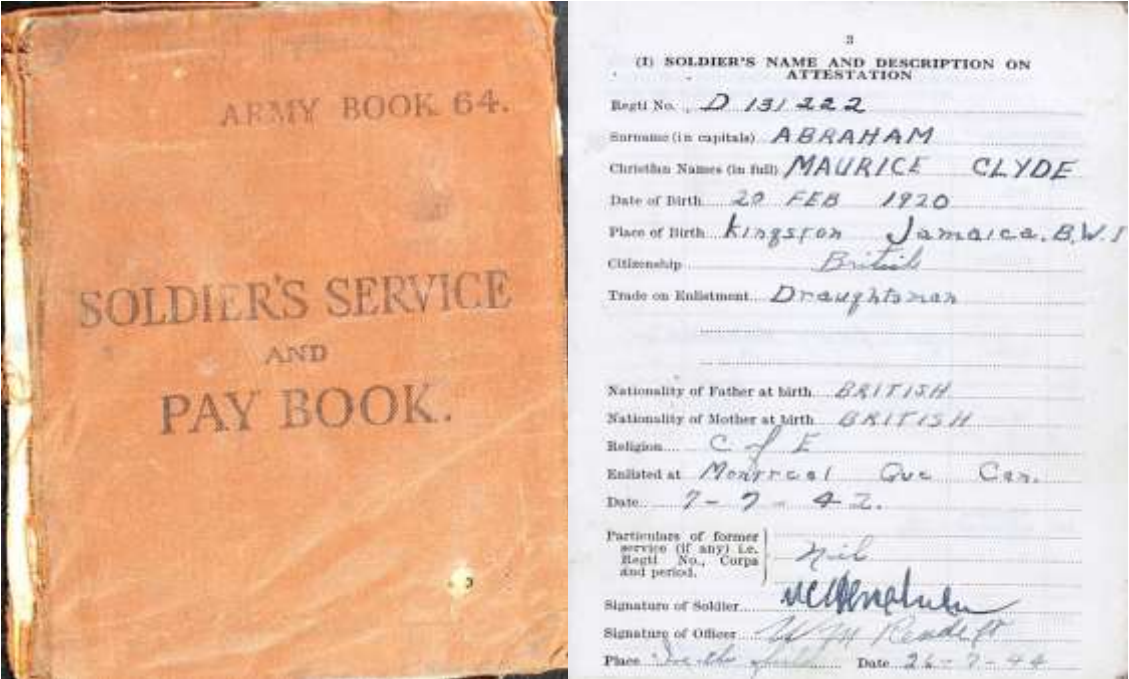 ARMY BOOK 64.
SOLDIER'S SERVICE
AND
PAY BOOK.
3
(I) SOLDIER'S NAME AND DESCRIPTION ON
ATTESTATION
Regtl No. D 131222
Surname (in capitals) ABRAHAM
Christian Names (in full) MAURICE CLYDE
Date of Birth 20 FEB 1920
Place of Birth Kingston Jamaica. B.W.I
Citizenship British
Trade on Enlistment Draughtsman
Nationality of Father at birth BRITISH
Nationality of Mother at birth BRITISH
Religion C of E
Enlisted at Montreal Que Can.
Date 7-7-42.
Particulars of former
service (if any) i.e.
Regtl No., Corps
and period.
Nil
Signature of Soldier
Signature of Officer
Place In the field Date 26-7-44